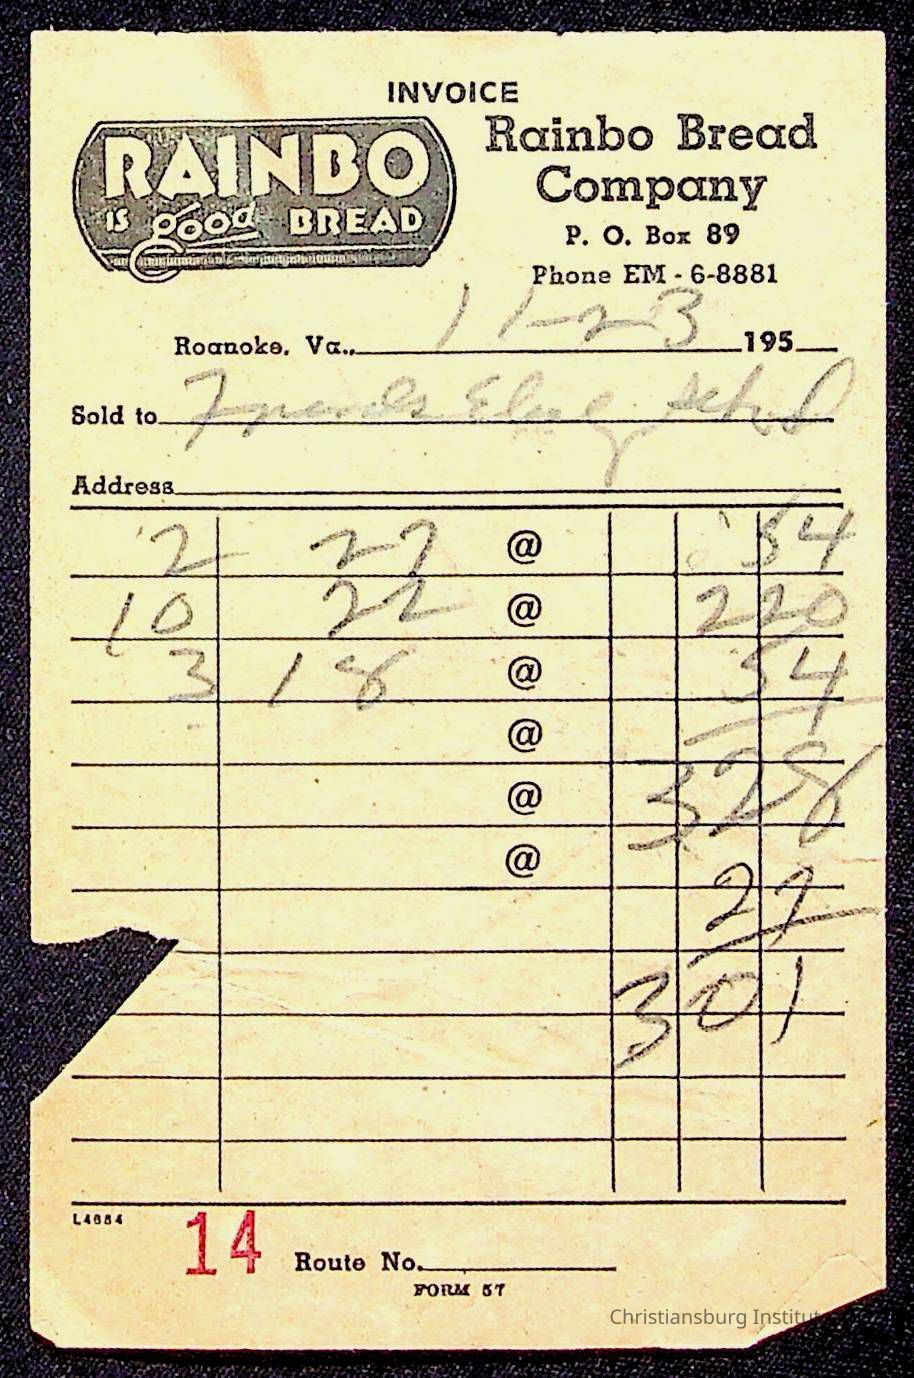 INVOICE
RAINBO
IS good BREAD
Rainbo Bread
Company
P. O. Box 89
Phone EM - 6-8881
Roanoke, Va., 11-23 195
Sold to Friends Elm
Address
2 27 @ 54
10 22 @ 220
3 18 @ 54
@ 328
@
@ 27
301
L4684
14 Route No.
FORM 57
Christiansburg Institut